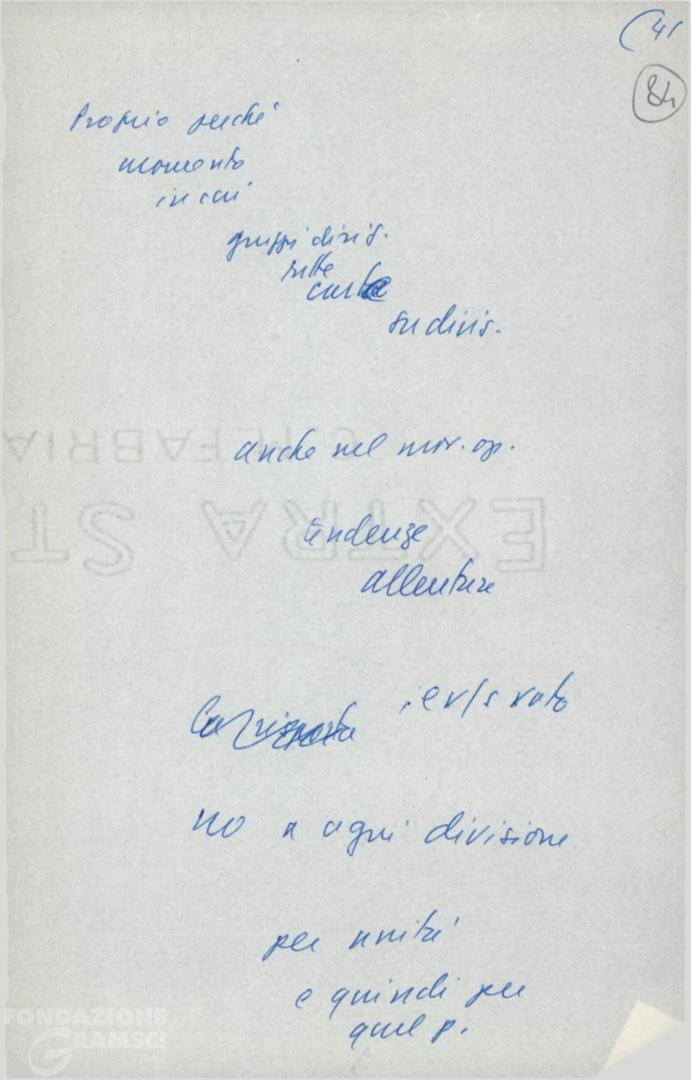 (41
84
Proprio perché
momento
in cui
gruppi divis.
sulle
carte
su divis.
anche nel mov. op.
tendenze
allentare
La risposta
no a ogni divisione
per unità
e quindi per
quel p.
EXTRA ST
FABRIA
FONDAZIONE
GRAMSCI